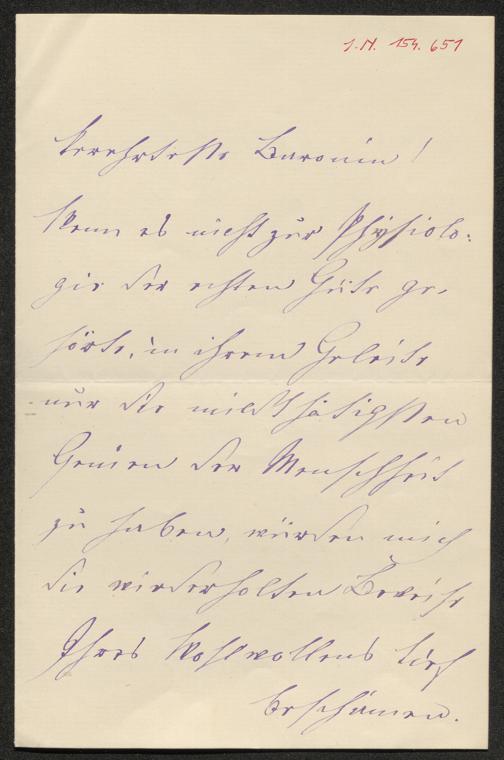 J.N. 154.651
Verehrteste Baronin!
Wenn es nicht zur Physiolo-
gie der echten Güte ge-
hörte, in ihrem Geleite
nur die mildthätigsten
Genien der Menschheit
zu haben, würden mich
die wiederholten Beweise
Ihres Wohlwollens tief
beschämen.